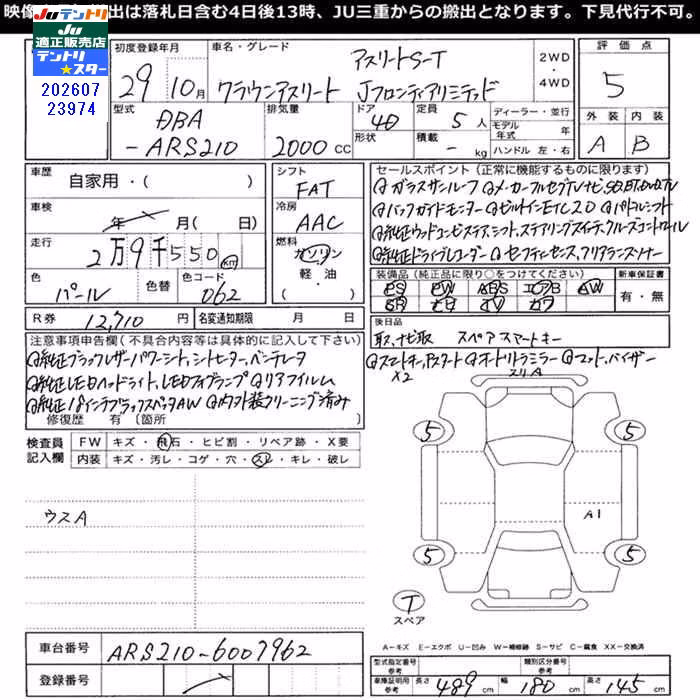 映像 出は落札日含む4日後13時、JU三重からの搬出となります。下見代行不可。
JUテントリ
JU
適正販売店
テントリ
★スター
202607
23974
初度登録年月
29 10月
車名・グレード
アスリートS-T
クラウンアスリート Jフロンティアリミテッド
2WD
・
4WD
評価点
5
外装 内装
A B
型式
DBA
-ARS210
排気量
2000 CC
ドア
4D
形状
定員
5 人
積載
- kg
ディーラー・並行
モデル年式 年
ハンドル 左・右
車歴
自家用・( )
車検
年 月(日)
走行
2万9千550 km
色
パール
色替
色コード
062
シフト
FAT
冷房
AAC
燃料
ガソリン
軽油・
( )
R券 12,710 円
名変通知期限 月 日
セールスポイント(正常に機能するものに限ります)
◎ガラスサンルーフ ◎メーカーフルセグTVナビ、SD,BT,DVD,TV
◎バックガイドモニター ◎ビルトインETC2.0 ◎パドルシフト
◎純正ウッドコンビステアシフト、ステアリングスイッチ、クルーズコントロール
◎純正ドライブレコーダー ◎セーフティセンス、クリアランスソナー
装備品(純正品に限り○をつけてください)
PS PW ABS エアB AW
SR ナビ TV カワ
新車保証書
有・無
後日品
取説、ナビ取 スペアスマートキー
注意事項申告欄(不具合内容等は具体的に記入して下さい)
◎純正ブラックレザーパワーシート、シートヒーター、ベンチレータ
◎純正LEDヘッドライト、LEDフォグランプ ◎リアフィルム
◎純正18インチブラックスパッタAW ◎内外装クリーニング済み
修復歴 有 〔箇所 〕
◎スマートキー、Pスタート ◎オートリトラミラー ◎マット、バイザー
X2
スリA
検査員
記入欄
FW キズ・飛石・ヒビ割・リペア跡・X要
内装 キズ・汚レ・コゲ・穴・スレ・キレ・破レ
ウスA
5 5
A1
5 5
T
スペア
車台番号 ARS210-6007962
登録番号
A-キズ E-エクボ U-凹み W-補修跡 S-サビ C-腐食 XX-交換済
型式指定番号
参考
類別区分番号
参考
車庫証明用
参考
長さ 489 cm 幅 180 cm 高さ 145 cm